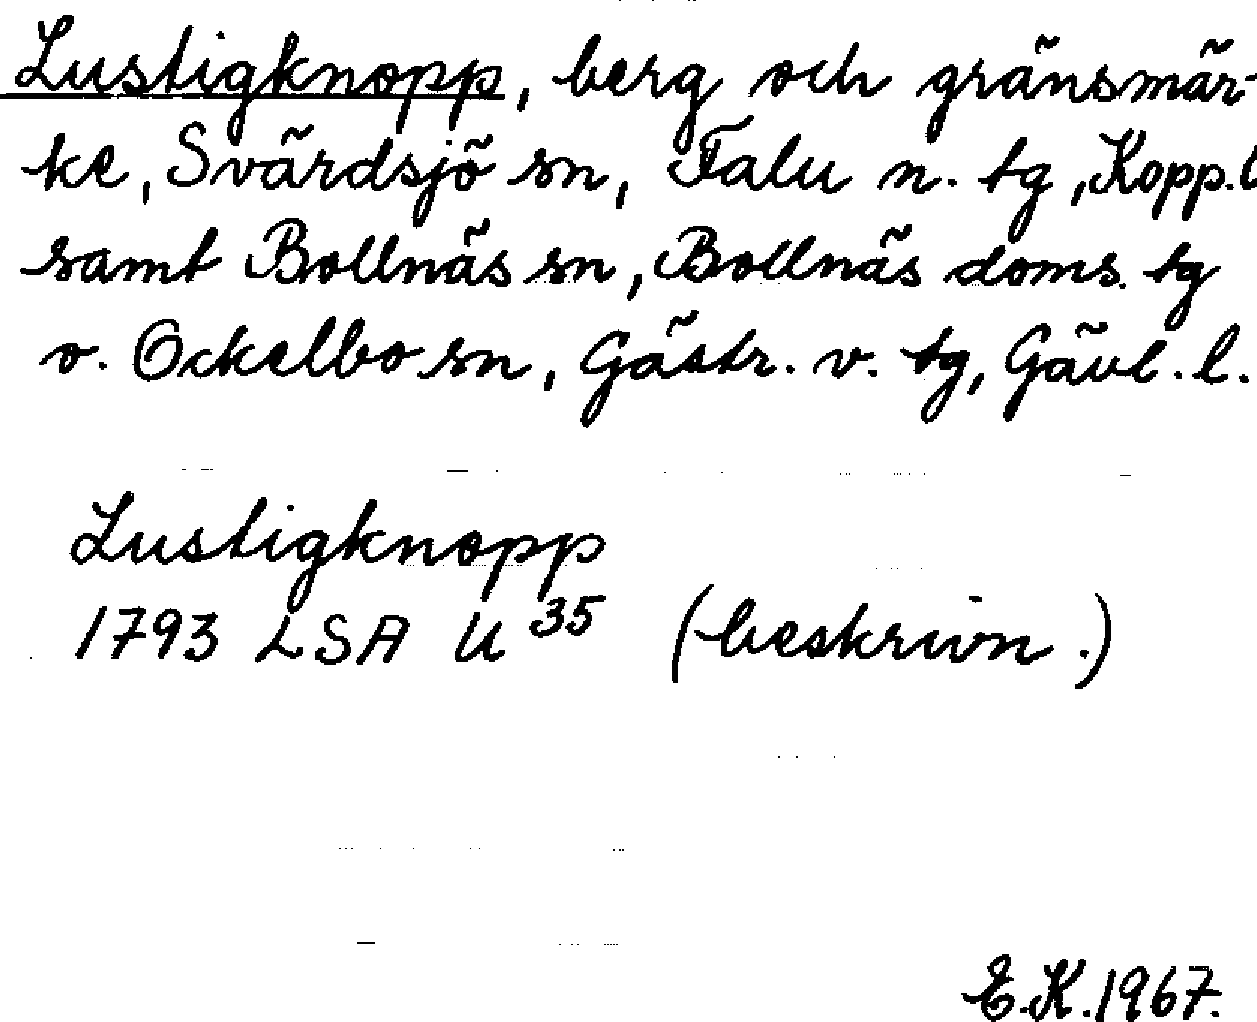 Lustigknopp, berg och gränsmär-
ke, Svärdsjö sn, Falu n. tg, Kopp. l
samt Bollnäs sn, Bollnäs doms. tg
o. Ockelbo sn, Gästr. v. tg, Gävl. l.
Lustigknopp
1793 LSA U 35 (beskrivn.)
E.K. 1967.